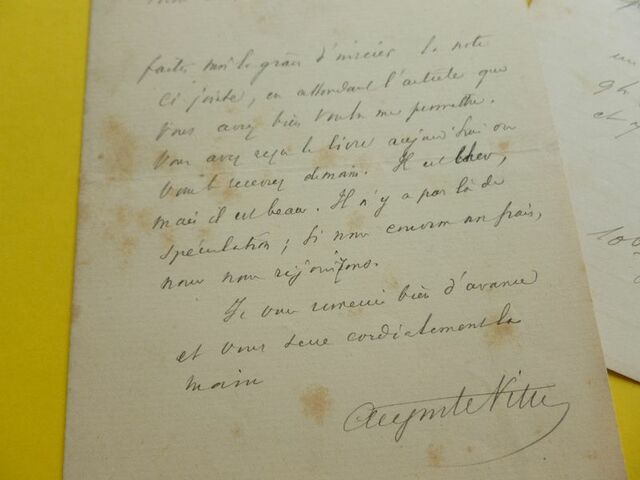 faites moi la grâce d'insérer la note
ci jointe, en attendant l'article que
vous avez bien voulu me permettre.
Vous avez reçu le livre aujourd'hui ou
vous le recevrez demain. Il est cher,
mais il est beau. Il n'y a pas là de
spéculation ; si nous couvrons nos frais,
nous nous réjouirons.
Je vous remercie bien d'avance
et vous serre cordialement la
main
Auguste Vitu
un
et
100